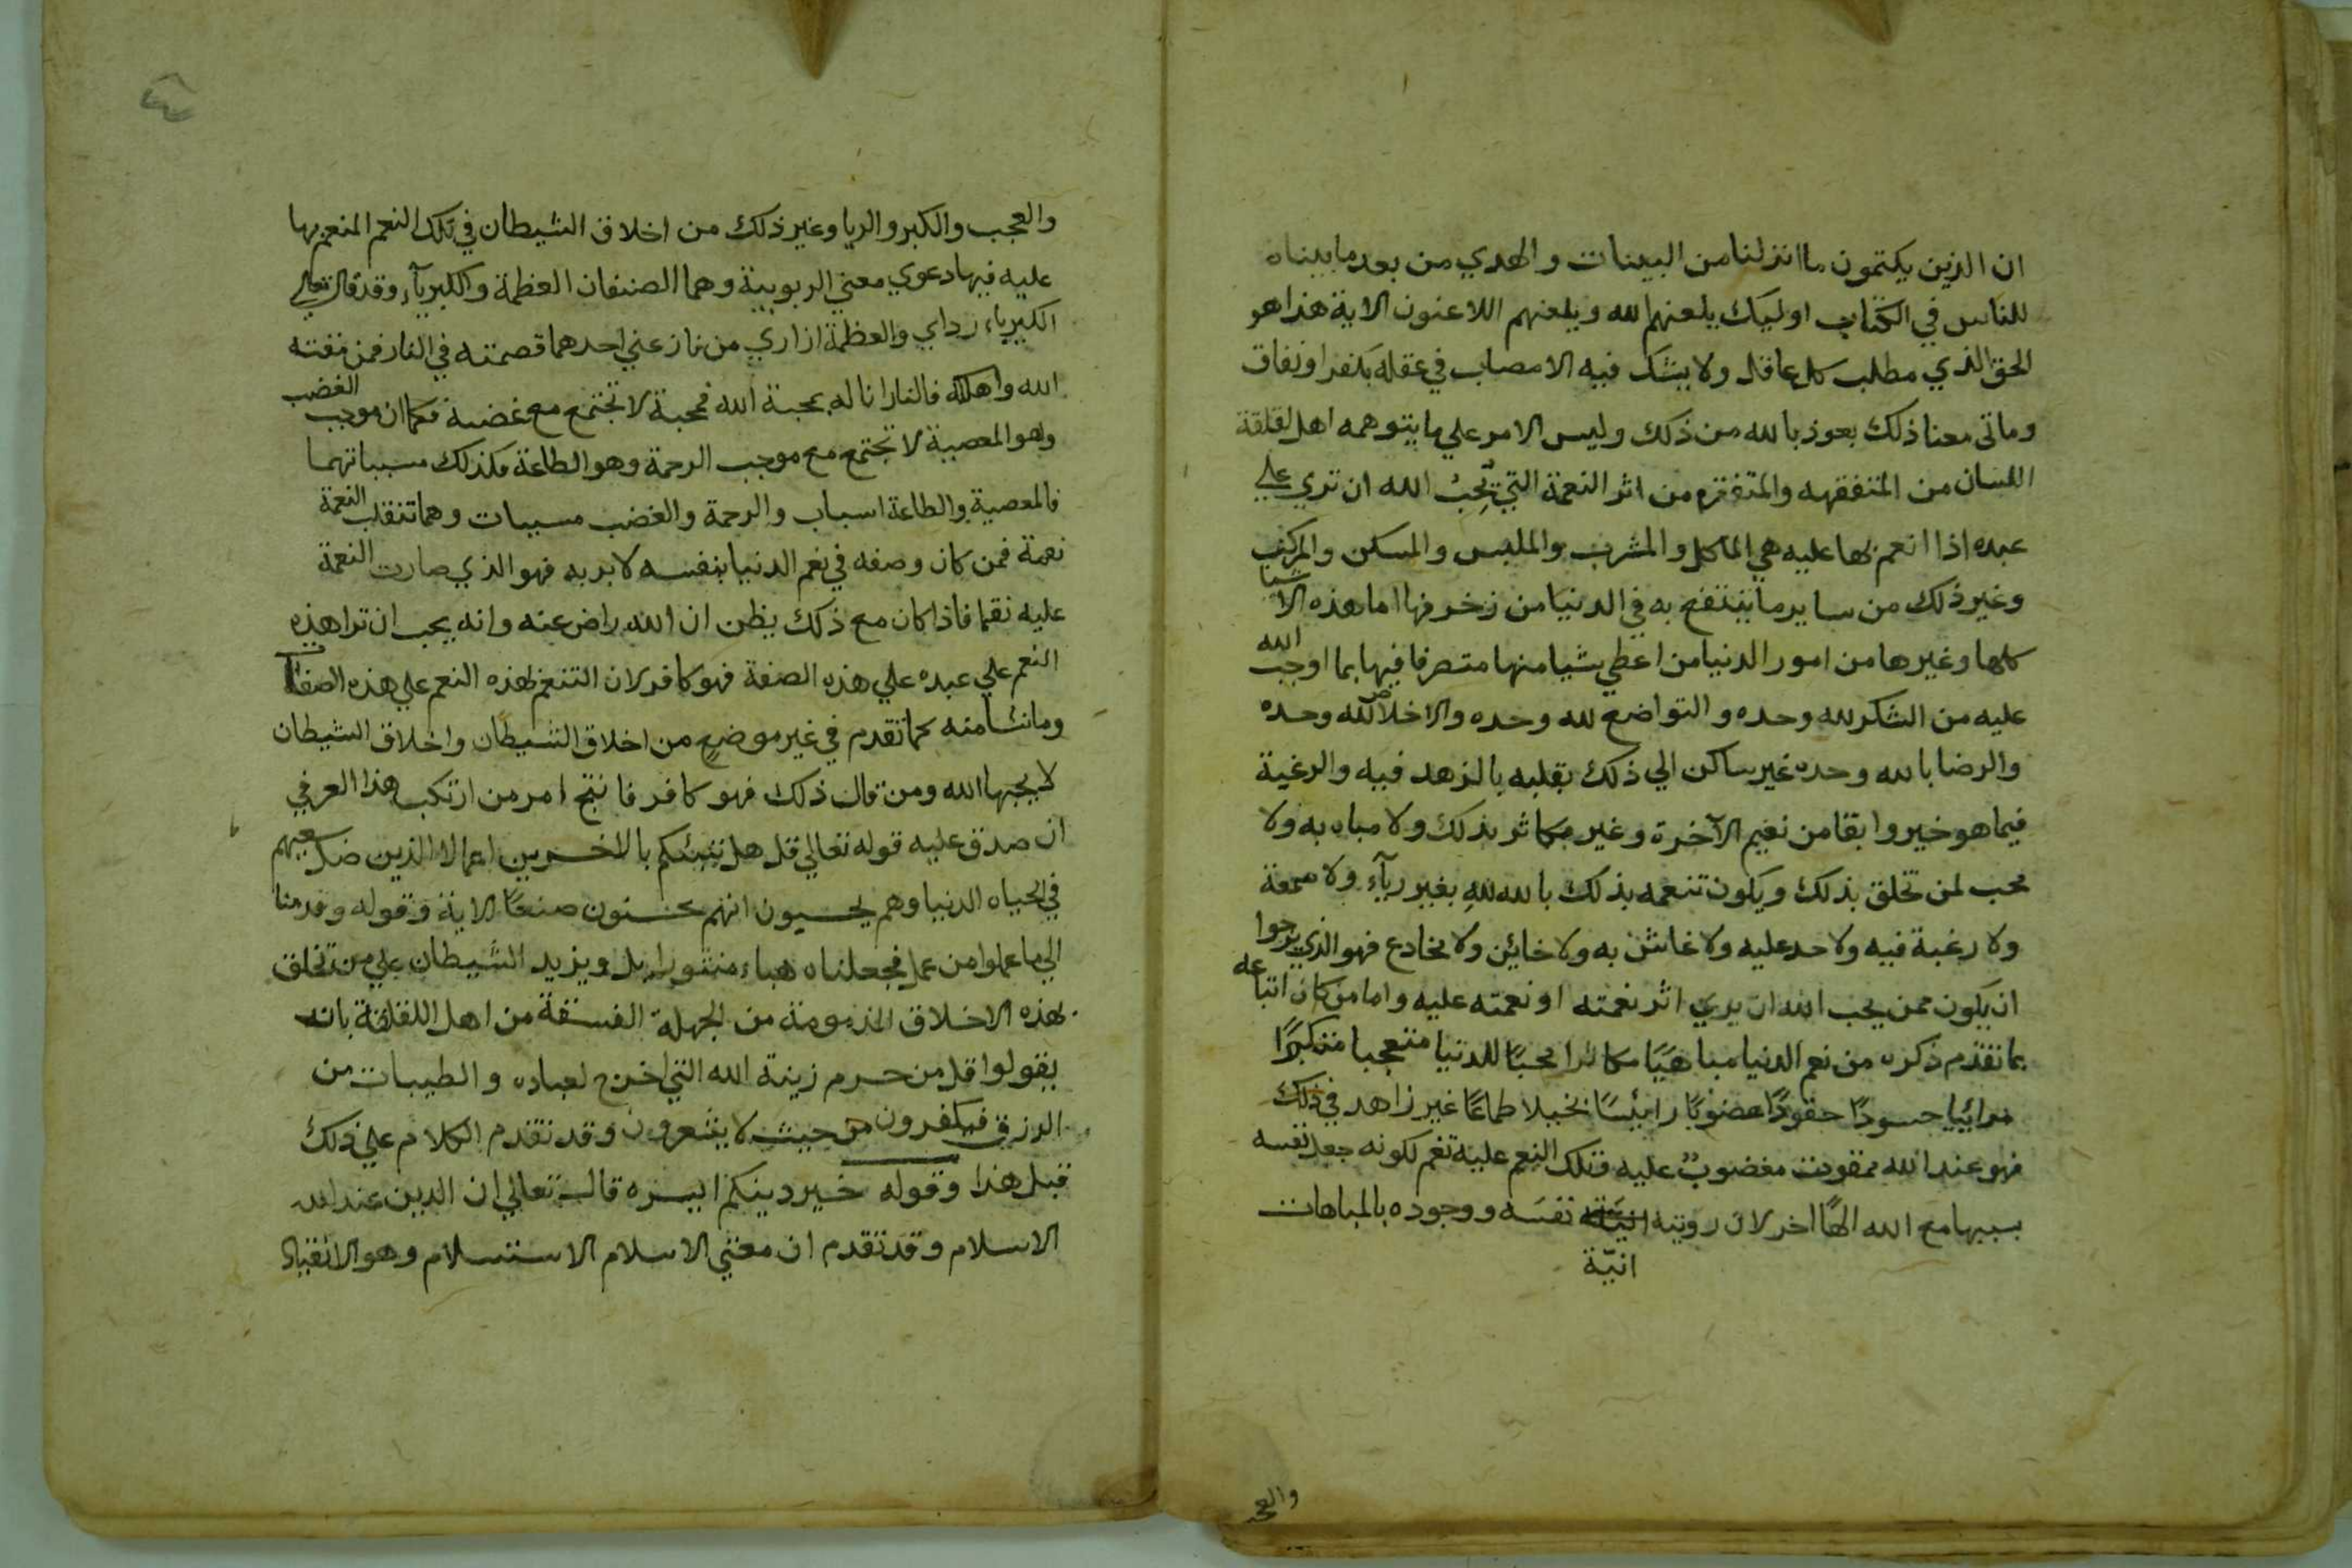 ان الذين يكتمون ما انزلنا من البينات والهدي من بعد ما بيناه
للناس في الكتاب اوليك يلعنهم الله ويلعنهم اللاعنون الاية هذا هو
الحق الذي مطلب كل عاقل ولا يشك فيه الا مصاب في عقله بكفر او نفاق
وماتى معنا ذلك بعوذ بالله من ذلك وليس الامر علي ما يتوهمه اهل لقلقة
اللسان من المتفقهه والمتفقره من اثر النعمة التي يحب الله ان تري علي
عبده اذا انعم بها عليه هي الماكل والمشرب والملبس والمسكن والمركب
وغير ذلك من ساير ما ينتفع به في الدنيا من زخرفها اما هذه الاشيا
كلها وغيرها من امور الدنيا من اعطي شيا منها متصرفا فيها بما اوجب الله
عليه من الشكر لله وحده والتواضع لله وحده والاخلاص لله وحده
والرضا بالله وحده غير ساكن الي ذلك بقلبه بالزهد فيه والرغبة
فيما هو خير وابقا من نعيم الآخرة وغير مكاثر بذلك ولا مباه به ولا
محب لمن تخلق بذلك ويكون تنعمه بذلك بالله لله بغير ريآء ولا سمعة
ولا رغبة فيه ولا حد عليه ولا غاش به ولا خاين ولا مخادع فهو الذي يرجوا
ان يكون ممن يحب الله ان يري اثر نعمته او نعمته عليه واما من كان اتباعه
بما تقدم ذكره من نعم الدنيا مباهيًا مكاثرا محبًا للدنيا متعجبا متكبرًا
مرائيا حسودًا حقودًا غضوبًا رائيسًا بخيلا طماعًا غير زاهد في ذلك
فهو عند الله ممقوت مغضوب عليه فتلك النعم عليه نقم لكونه جعل نفسه
بسببها مع الله الهًا اخر لان رويته نفسه ووجوده بالمباهات
انيّة
والعجب
والعجب والكبر والريا وغير ذلك من اخلاق الشيطان في تلك النعم المنعم بها
عليه فيها دعوي معني الربوبية وهما الصنفان العظمة والكبريآء وقد قال تعالي
الكبرياء رداي والعظمة ازاري من نازعني احدهما قصمته في النار فمن مقته
الله واهلكه فالنار انا له بمحبة الله فمحبة لا تجتمع مع غضبه فكما ان موجب الغضب
وهو المعصية لا تجتمع مع موجب الرحمة وهو الطاعة فكذلك مسبباتهما
فالمعصية والطاعة اسباب والرحمة والغضب مسببات وهما تنقلب النعمة
نعمة فمن كان وصفه في نعم الدنيا بنفسه لا بربه فهو الذي صارت النعمة
عليه نقما فاذا كان مع ذلك يظن ان الله راض عنه وانه يحب ان ترا هذه
النعم علي عبده علي هذه الصفة فهو كافر لان التنعم بهذه النعم علي هذه الصفات
وما نشا منه كما تقدم في غير موضع من اخلاق الشيطان واخلاق الشيطان
لا يحبها الله ومن قال ذلك فهو كافر فانتج امر من ارتكب هذا العرفي
ان صدق عليه قوله تعالي قل هل ننبئكم بالاخسرين اعمالا الذين ضل سعيهم
في الحياه الدنيا وهم يحسبون انهم يحسنون صنعًا الاية وقوله وقدمنا
الي ما عملوا من عمل فجعلناه هباء منثورا بل ويزيد الشيطان علي من تخلق
بهذه الاخلاق المذمومة من الجهلة الفسقة من اهل اللقلقة بانه
يقولوا قل من حرم زينة الله التي اخرج لعباده والطيبات من
الرزق فيكفرون من حيث لا يشعرون وقد تقدم الكلام علي ذلك
قبل هذا وقوله خير دينكم ايسره قال تعالي ان الدين عند الله
الاسلام وقد تقدم ان معني الاسلام الاستسلام وهو الانقياد